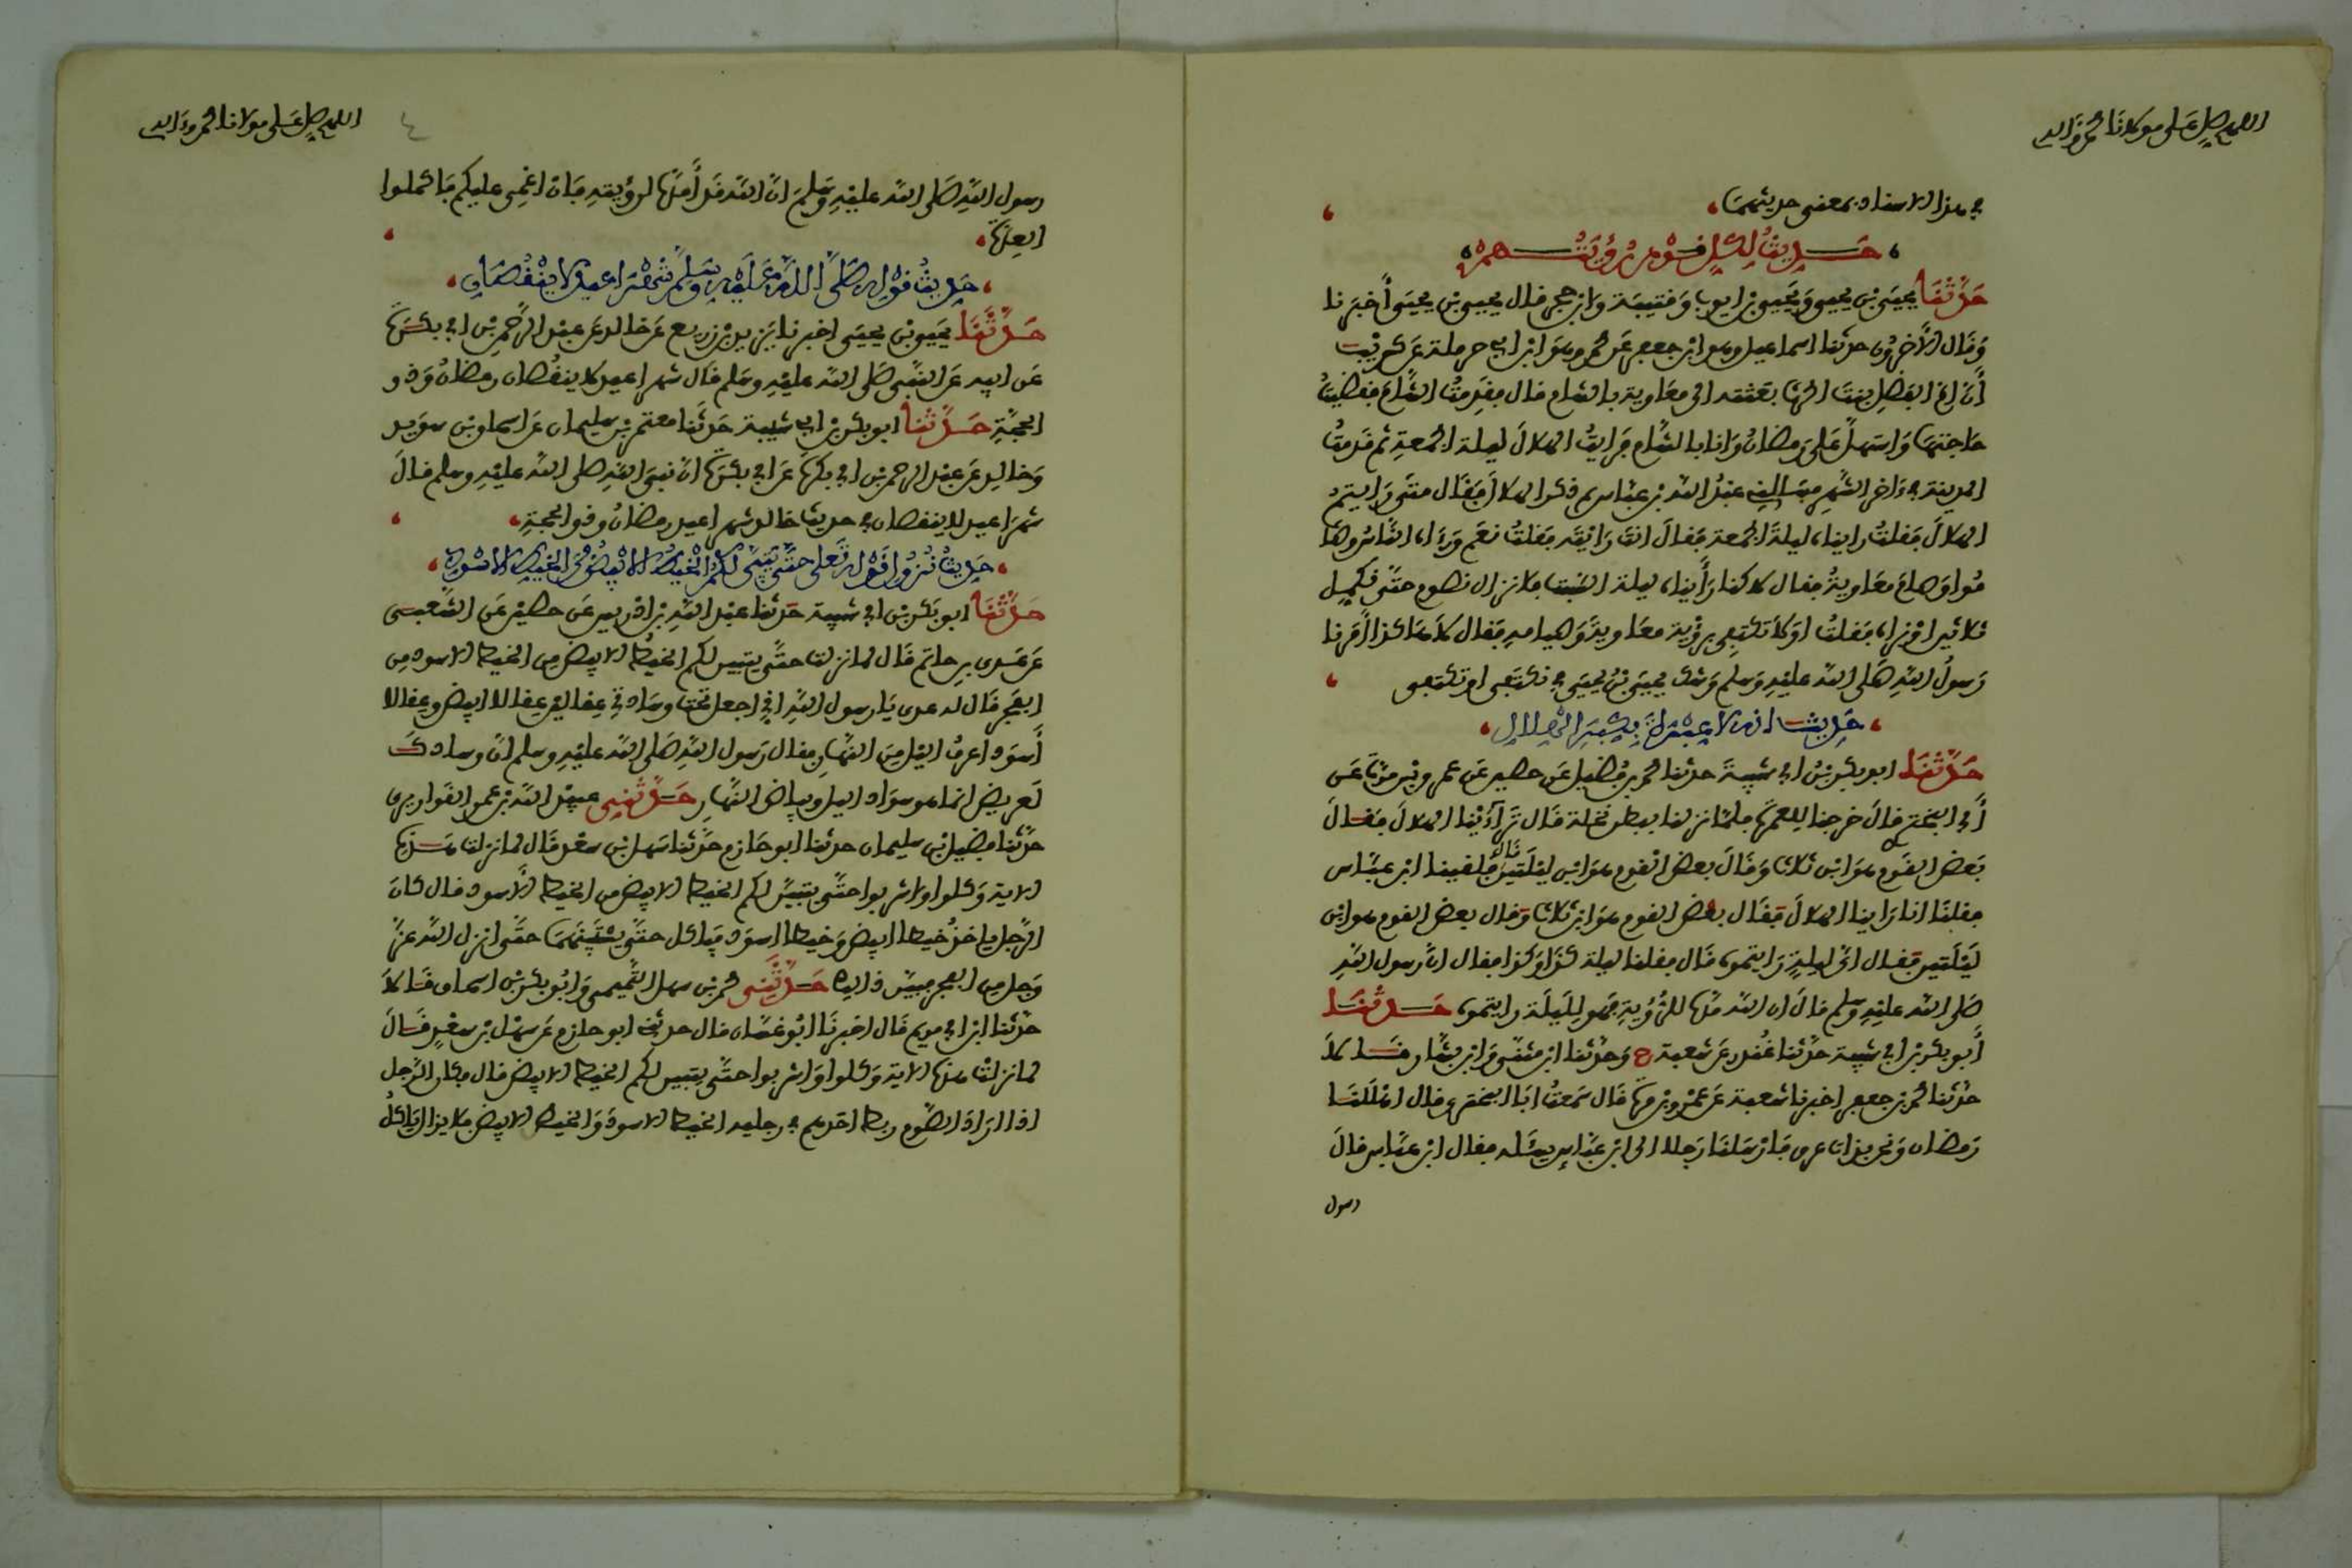 اللهم صل على مولانا محمد وءاله
في هذا الاسناد بمعنى حديثهما
حديث لكل قوم رؤيتهم
حدثنا يحيى بن يحيى ويحيى بن ايوب وقتيبة وابن حجر قال يحيى بن يحيى أخبرنا
وقال الآخرون حدثنا اسماعيل وهو ابن جعفر عن محمد وهو ابن ابي حرملة عن كريب
أن ام الفضل بنت الحرث بعثته الى معاوية بالشام قال فقدمت الشام فقضيت
حاجتها واستهل على رمضان وانا بالشام فرايت الهلال ليلة الجمعة ثم قدمت
المدينة في ءاخر الشهر فسالني عبد الله بن عباس ثم ذكر الهلال فقال متى رايتم
الهلال فقلت رايناه ليلة الجمعة فقال انت رايته فقلت نعم ورءاه الناس وصا
موا وصام معاوية فقال لاكنا رأيناه ليلة السبت فلا نزال نصوم حتى نكمل
ثلاثين او نراه فقلت اولا تكتفي برؤية معاوية وصيامه فقال لا هكذا أمرنا
رسول الله صلى الله عليه وسلم وشك يحيى بن يحيى في نكتفي او تكتفي
حديث انه لا عبرة بكبر الهلال
حدثنا ابو بكر بن ابي شيبة حدثنا محمد بن فضيل عن حصين عن عمرو بن مرة عن
أبي البختري قال خرجنا للعمرة فلما نزلنا ببطن نخلة قال تراءينا الهلال فقال
بعض القوم هو ابن ثلاث وقال بعض القوم هو ابن ليلتين قال فلقينا ابن عباس
فقلنا انا راينا الهلال فقال بعض القوم هو ابن ثلاث وقال بعض القوم هو ابن
ليلتين فقال اي ليلة رايتموه قال فقلنا ليلة كذا وكذا فقال ان رسول الله
صلى الله عليه وسلم قال ان الله مده للرؤية فهو لليلة رايتموه حدثنا
أبو بكر بن ابي شيبة حدثنا غندر عن شعبة ح وحدثنا ابن مثنى وابن بشار قالا
حدثنا محمد بن جعفر اخبرنا شعبة عن عمرو بن مرة قال سمعت ابا البختري قال اهللنا
رمضان ونحن بذات عرق فارسلنا رجلا الى ابن عباس يسئله فقال ابن عباس قال
رسول
اللهم صل على مولانا محمد وءاله
٤
رسول الله صلى الله عليه وسلم ان الله قد أمده لرؤيته فان اغمي عليكم فاكملوا
العدة
حديث قوله صلى الله عليه وسلم شهرا عيد لا ينقصان
حدثنا يحيى بن يحيى اخبرنا يزيد بن زريع عن خالد عن عبد الرحمن بن ابي بكرة
عن ابيه عن النبي صلى الله عليه وسلم قال شهرا عيد لا ينقصان رمضان وذو
الحجة حدثنا ابو بكر بن ابي شيبة حدثنا معتمر بن سليمان عن اسحاق بن سويد
وخالد عن عبد الرحمن بن ابي بكرة عن ابي بكرة ان نبي الله صلى الله عليه وسلم قال
شهرا عيد لا ينقصان في حديث خالد شهرا عيد رمضان وذو الحجة
حديث نزول قوله تعلى حتى يتبين لكم الخيط الابيض من الخيط الاسود
حدثنا ابو بكر بن ابي شيبة حدثنا عبد الله بن ادريس عن حصين عن الشعبي
عن عدي بن حاتم قال لما نزلت حتى يتبين لكم الخيط الابيض من الخيط الاسود من
الفجر قال له عدي يا رسول الله اني اجعل تحت وسادتي عقالين عقالا ابيض وعقالا
أسود اعرف الليل من النهار فقال رسول الله صلى الله عليه وسلم ان وسادك
لعريض انما هو سواد الليل وبياض النهار حدثني عبيد الله بن عمر القواريري
حدثنا فضيل بن سليمان حدثنا ابو حازم حدثنا سهل بن سعد قال لما نزلت هذه
الاية وكلوا واشربوا حتى يتبين لكم الخيط الابيض من الخيط الأسود قال كان
الرجل ياخذ خيطا ابيض وخيطا اسود فياكل حتى يستبينهما حتى انزل الله عز
وجل من الفجر فبين ذالك حدثني محمد بن سهل التميمي وابو بكر بن اسحاق قالا
حدثنا ابن ابي مريم قال اخبرنا ابو غسان قال حدثني ابو حازم عن سهل بن سعد قال
لما نزلت هذه الاية وكلوا واشربوا حتى يتبين لكم الخيط الابيض قال فكان الرجل
اذا اراد الصوم ربط احدهم في رجليه الخيط الاسود والخيط الابيض فلا يزال ياكل